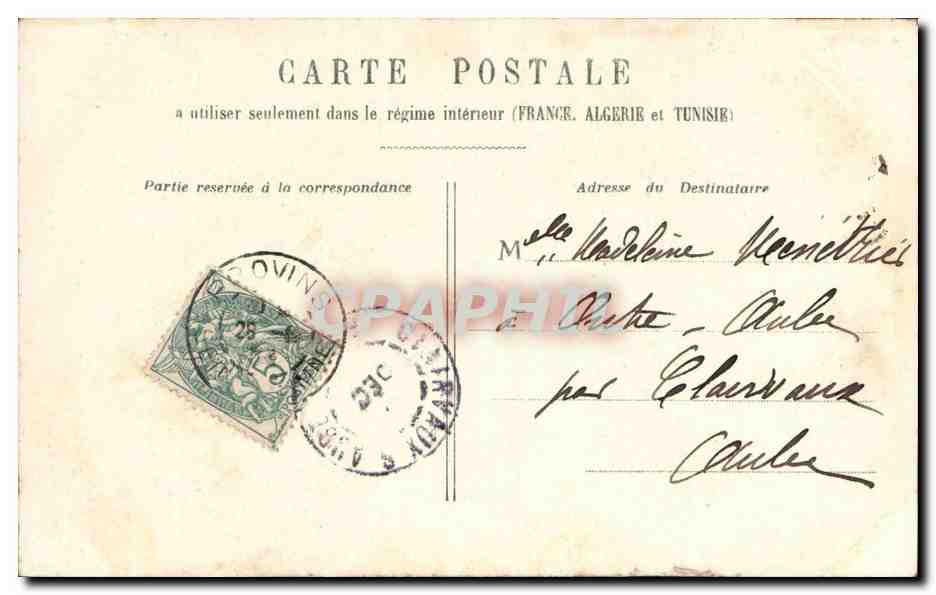 CARTE POSTALE
à utiliser seulement dans le régime intérieur (FRANCE, ALGERIE et TUNISIE)
Partie reservée à la correspondance
Adresse du Destinataire
Melle Madeleine Menétrier
à Outre-Aube
par Clairvaux
Aube
PROVINS
28
5c
CLAIRVAUX S. AUBE
DEC
CPAPHIL